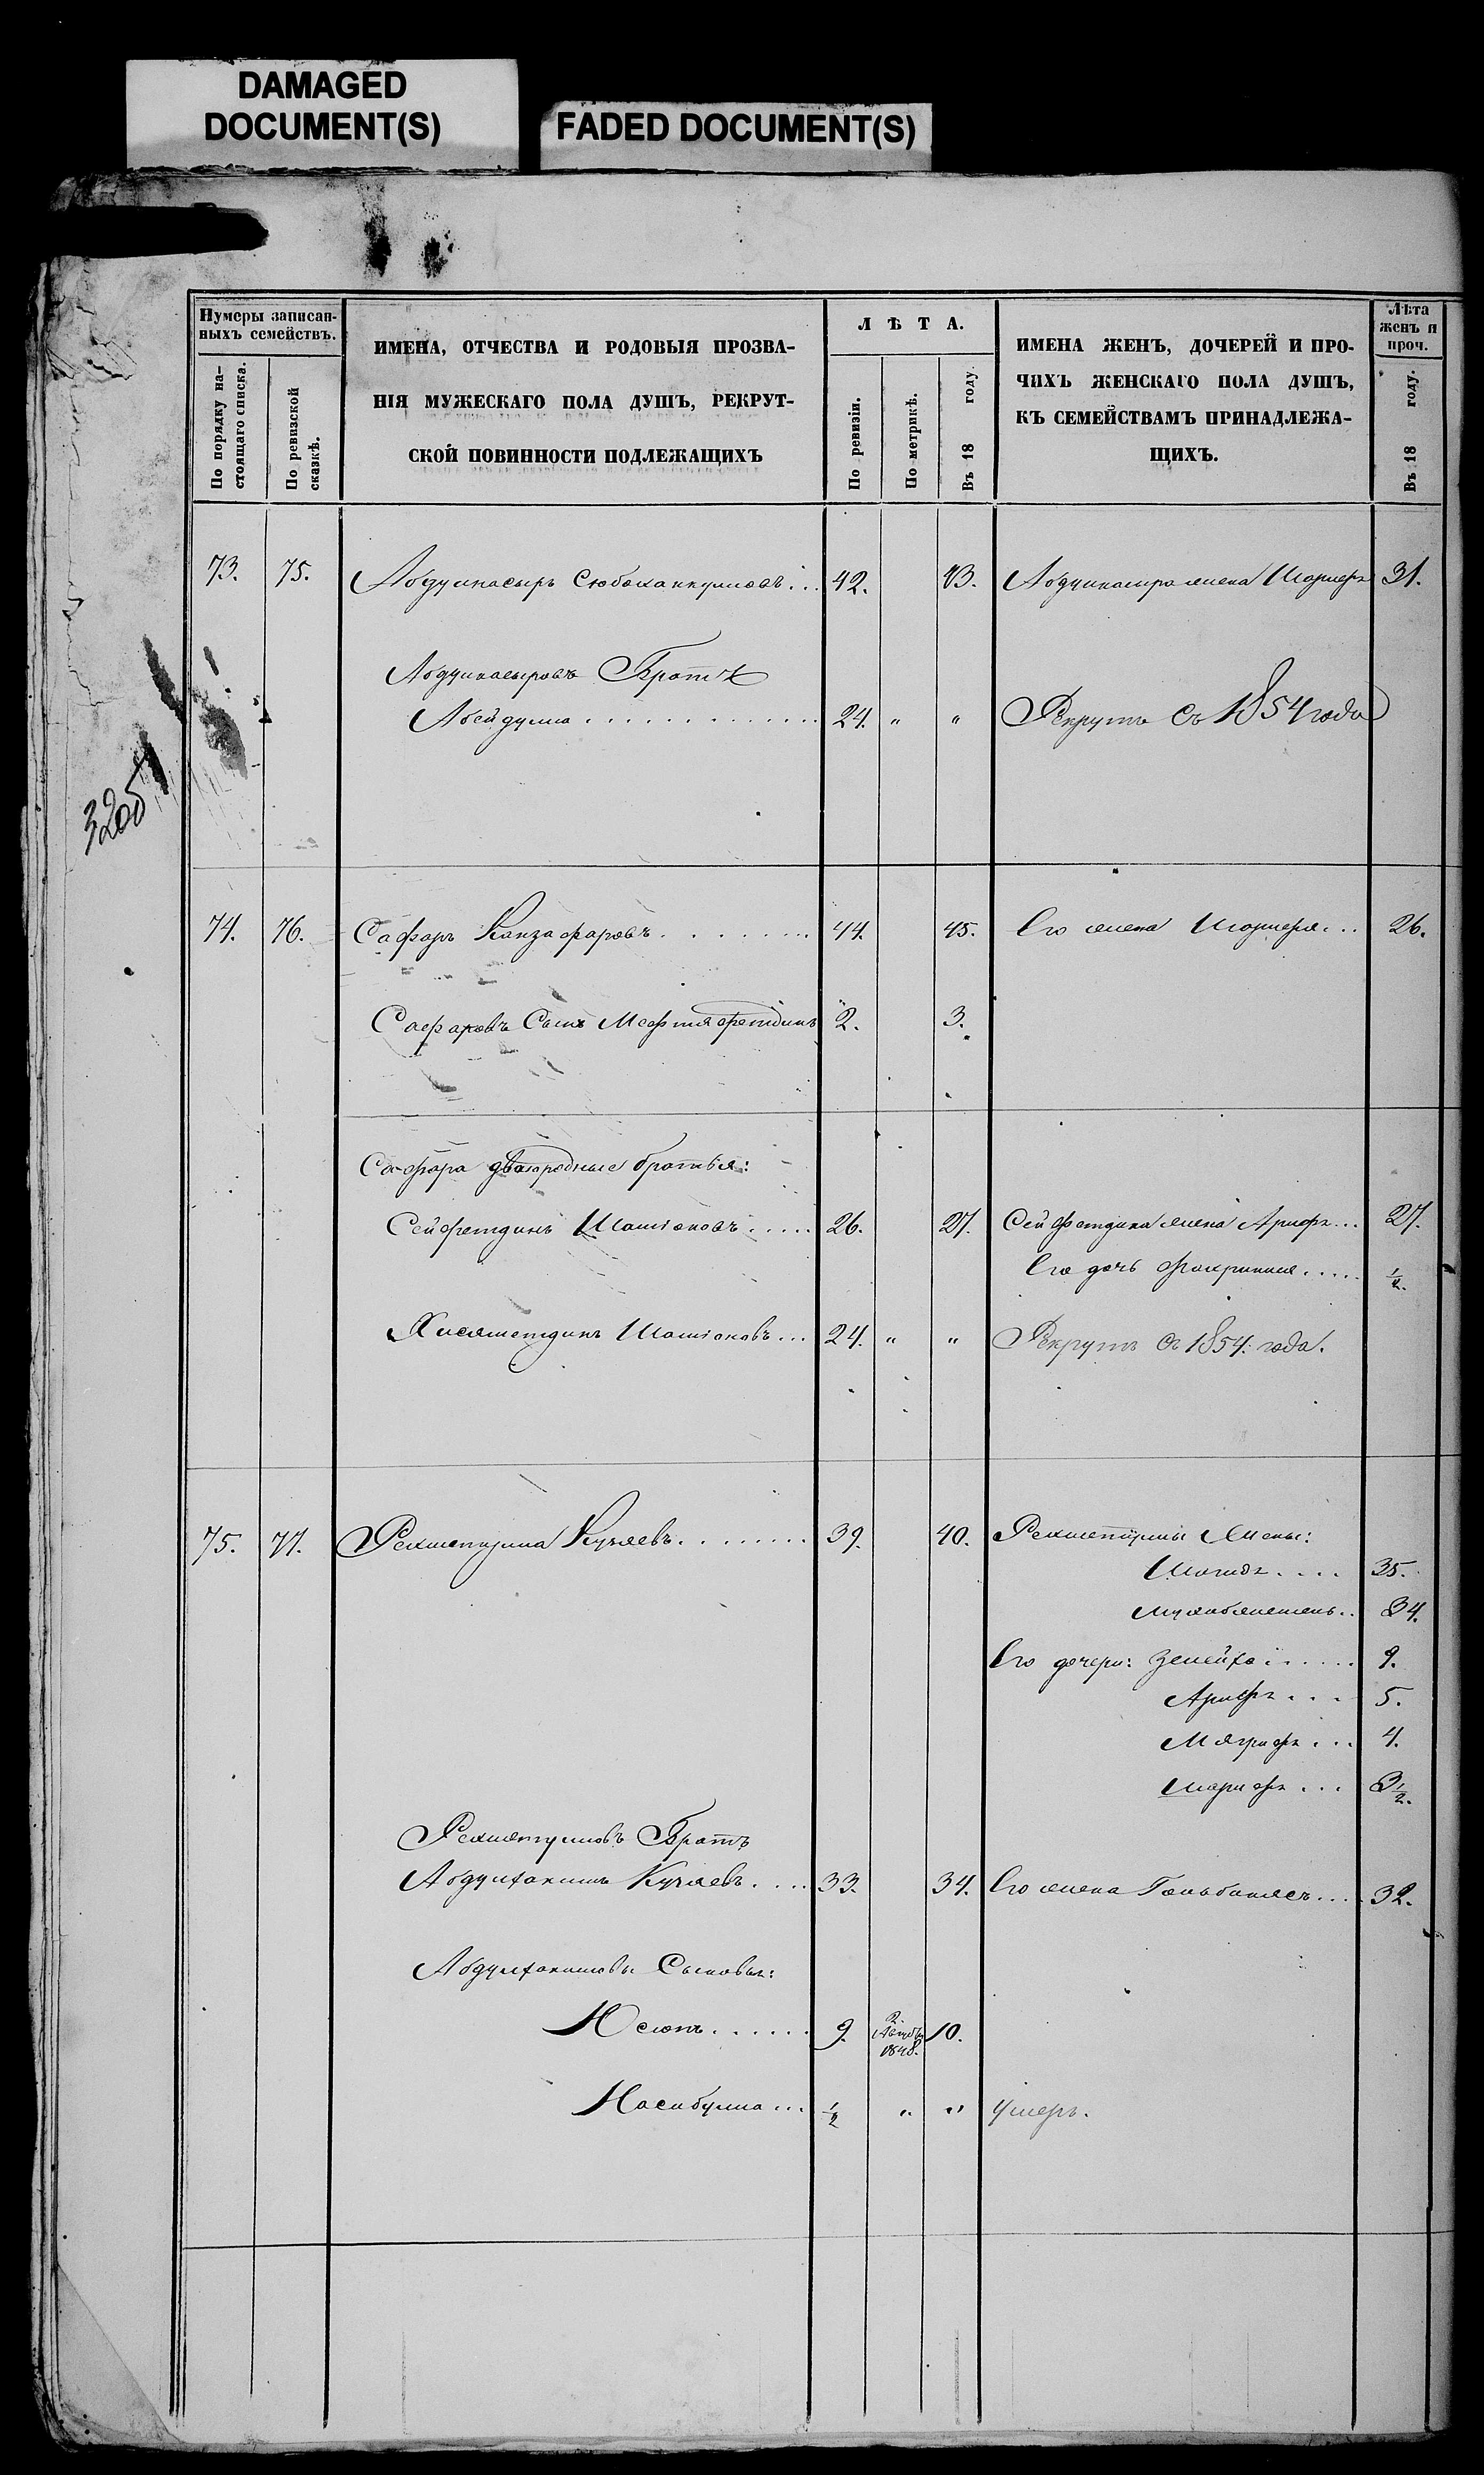 DAMAGED
DOCUMENT(S)
FADED DOCUMENT(S)
Нумеры записан-
ныхъ семействъ.
По порядку на-
стоящаго списка.
По ревизской
сказкѣ.
ИМЕНА, ОТЧЕСТВА И РОДОВЫЯ ПРОЗВА-
НІЯ МУЖЕСКАГО ПОЛА ДУШЪ, РЕКРУТ-
СКОЙ ПОВИННОСТИ ПОДЛЕЖАЩИХЪ
ЛѢТА.
По ревизіи.
По метрикѣ.
Въ 18 году.
ИМЕНА ЖЕНЪ, ДОЧЕРЕЙ И ПРО-
ЧИХЪ ЖЕНСКАГО ПОЛА ДУШЪ,
КЪ СЕМЕЙСТВАМЪ ПРИНАДЛЕЖА-
ЩИХЪ.
Лѣта
женъ и
проч.
Въ 18 году.
73. 75. Абдулнасыръ 42. 43. жена 31.
Абдулнасыровъ Братъ
Абейдулла 24. " " Рекрутъ съ 1854 года
320б
74. 76. Сафаръ Канзафаровъ 44. 45. Его жена 26.
Сафаровъ Сынъ 2. 3.
Сафара двоюродные братья:
Сейфетдинъ 26. 27. Сейфетдина жена Арифа 27.
Его дочь 1/2.
24. " " Рекрутъ съ 1854. года.
75. 77. Рахметулла Кучаевъ 39. 40. Рахметуллы Жены:
35.
34.
Его дочери: Зелейха 9.
Арифа 5.
4.
Шарифа 3 1/2.
Рахметулловъ Братъ
Абдулхакимъ Кучаевъ 33. 34. Его жена 32.
Абдулхакимовы Сыновья:
Юсюпъ 9. 1848. 10.
Насибулла 1/2 " " умеръ.